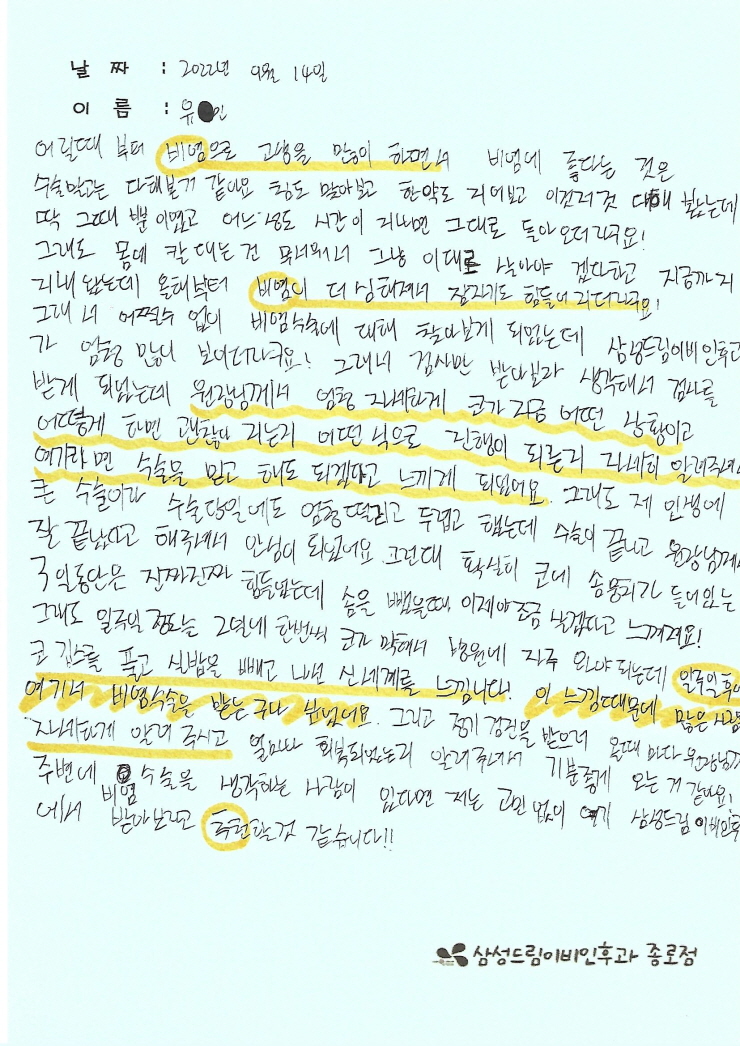 날 짜 : 2022년 9월 14일
이 름 : 유 인
어릴때 부터 비염으로 고생을 많이 하면서 비염에 좋다는 것은
수술말고는 다해본거 같아요 침도 맞아보고 한약도 지어보고 이것저것 다해 봤는데
딱 그때 뿐이였고 어느정도 시간이 지나면 그대로 돌아오더라구요!
그래도 몸에 칼 대는건 무서워서 그냥 이대로 살아야 겠다하고 지금까지
지내왔는데 올해부터 비염이 더 심해져서 잠자기도 힘들어 지더라구요!
그래서 어쩔수 없이 비염수술에 대해 찾아보게 되었는데 삼성드림이비인후과
가 엄청 많이 보이더라구요! 그래서 검사만 받아보라 생각해서 검사를
받게 되었는데 원장님께서 엄청 자세하게 코가 지금 어떤 상황이고
어떻게 하면 괜찮아 지는지 어떤 식으로 진행이 되는지 자세히 알려주셔
여기라면 수술을 믿고 해도 되겠다고 느끼게 되었어요. 그래도 제 인생에
큰 수술이라 수술당일에도 엄청 떨리고 두렵고 했는데 수술이 끝나고 원장님께서
잘 끝났다고 해주셔서 안심이 되었어요 그런데 확실히 코에 솜뭉치가 들어있는
3일동안은 진짜진짜 힘들었는데 솜을 뺐을때 이제야 조금 살겠다고 느껴져요!
그래도 일주일 정도는 코가 막혀서 병원에 자주 와야 되는데 일주일 후에
코 깁스를 풀고 실밥을 빼고 나면 신세계를 느낍니다. 이 느낌때문에 많은 사람
여기서 비염수술을 받는구나 싶었어요. 그리고 정기 검진을 받으러 올때 마다 원장님께
자세하게 알려 주시고 얼마나 회복되었는지 알려주셔서 기분좋게 오는 거 같아요!
주변에 비염 수술을 생각하는 사람이 있다면 저는 고민 없이 여기 삼성드림이비인후
에서 받아보라고 추천할것 같습니다!!
삼성드림이비인후과 종로점